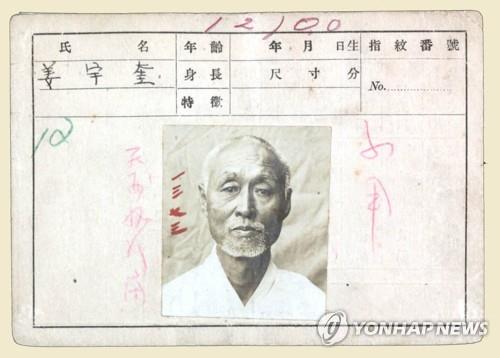 12100
氏名 年齡 年月日生 指紋番號
姜宇奎 身長 尺寸分 No.
特徵
12
一三七三
不用
YONHAPNEWS